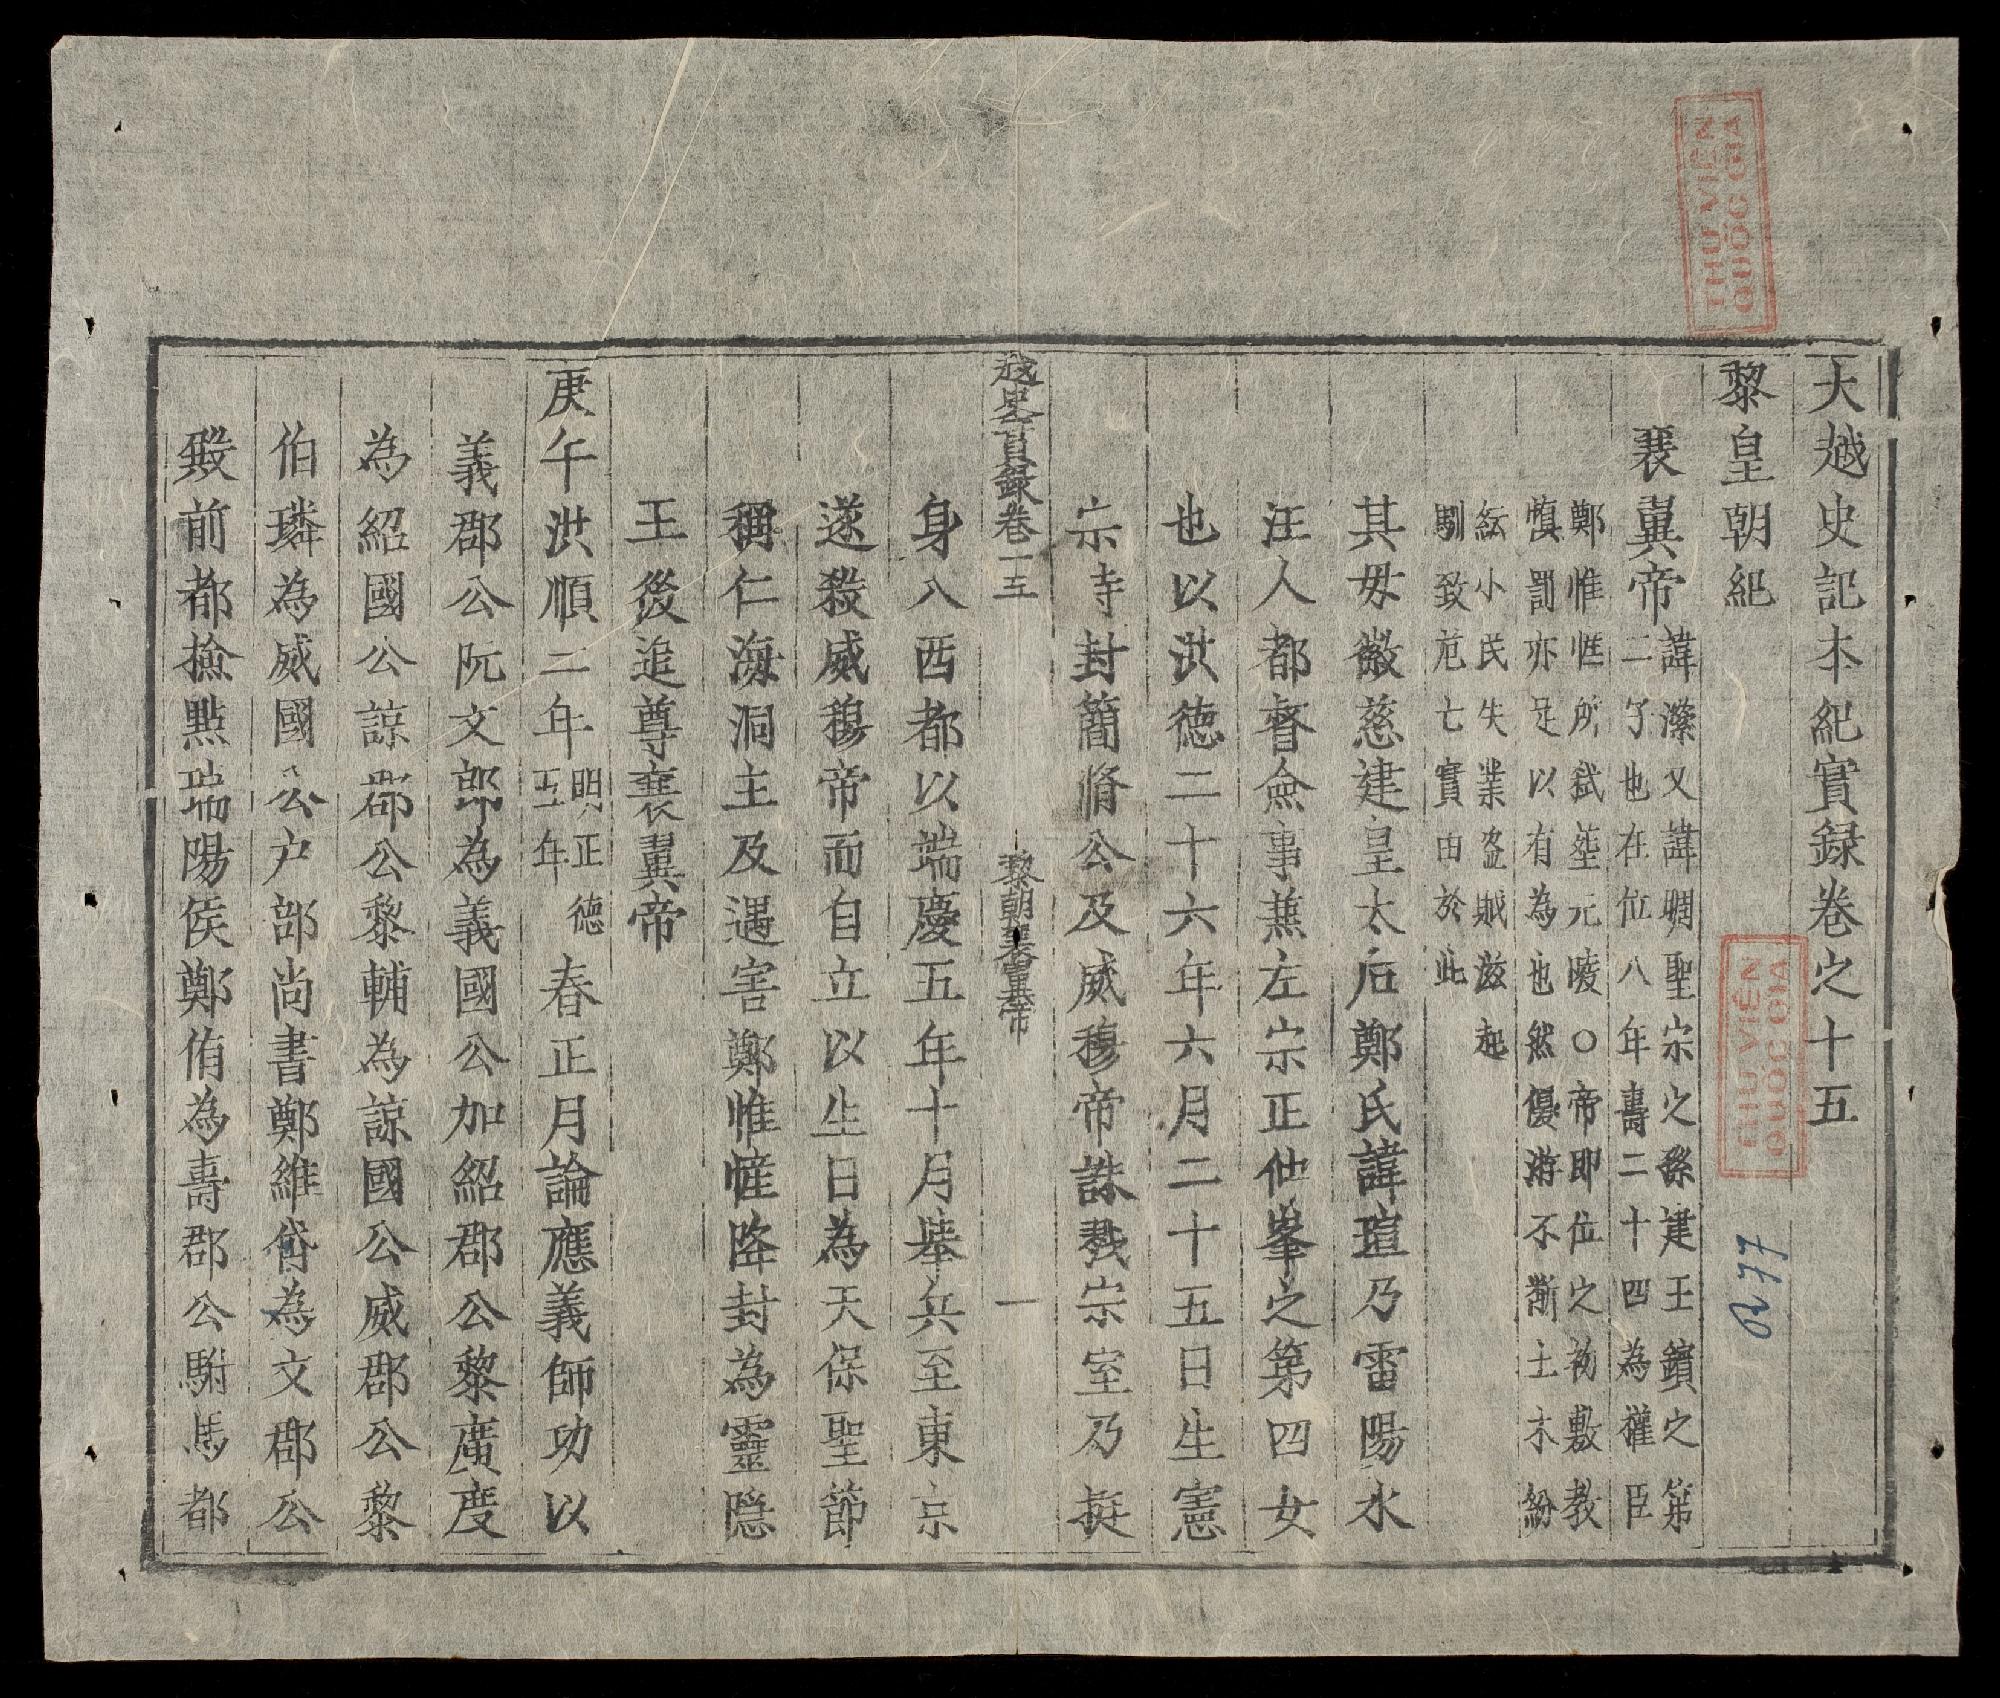 大越史記本紀實録卷之十五
黎皇朝紀
襄翼帝
諱瀠又諱晭聖宗之孫建王鑌之第
二子也在位八年壽二十四為權臣
鄭惟㦃所弑塟元陵○帝即位之初敷教
慎罰亦足以有為也然優游不斷土木紛
紜小民失業盗賊滋起
馴致危亡實由於此
其母徽慈建皇太后鄭氏諱瑄乃雷陽水
注人都督僉事兼左宗正仲峯之第四女
也以洪德二十六年六月二十五日生憲
宗時封簡脩公及威穆帝誅戮宗室乃挺
身入西都以端慶五年十月舉兵至東京
遂殺威穆帝而自立以生日為天保聖節
稱仁海洞主及遇害鄭惟㦃降封為靈隠
王後追尊襄翼帝
庚午洪順二年
明正德
五年
春正月論應義師功以
義郡公阮文郎為義國公加紹郡公黎廣度
為紹國公諒郡公黎輔為諒國公威郡公黎
伯璘為威國公户部尚書鄭維岱為文郡公
殿前都撿點瑞陽侯鄭侑為壽郡公駙馬都
越史實録卷一五
黎朝襄翼帝
一
THƯ VIỆN
QUỐC GIA
THƯ VIỆN
QUỐC GIA